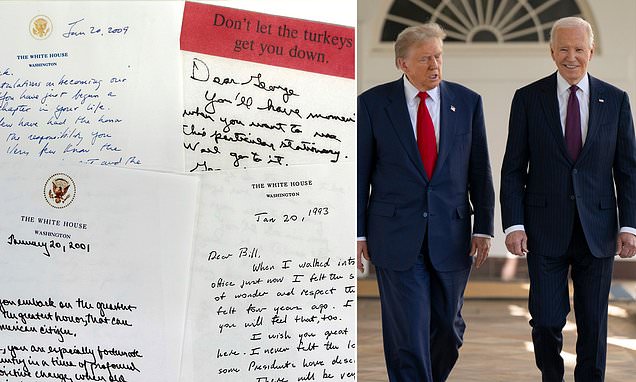 THE WHITE HOUSE
WASHINGTON
Jan 20, 2009
on becoming our
You have just begun a
chapter in your life.
few have had the honor
the responsibility you
Very few know the
and the
Don't let the turkeys
get you down.
Dear George
You'll have moments
when you want to use
this particular stationary.
Well go to it.
THE WHITE HOUSE
WASHINGTON
January 20, 2001
you embark on the greatest
the greatest honor, that can
American citizen.
you are especially fortunate
country in a time of profound
change, when old
THE WHITE HOUSE
WASHINGTON
Jan 20, 1993
Dear Bill,
When I walked into
office just now I felt the s
of wonder and respect th
felt four years ago. I
you will feel that, too.
I wish you great
here. I never felt the lo
some Presidents have desc
There will be ver